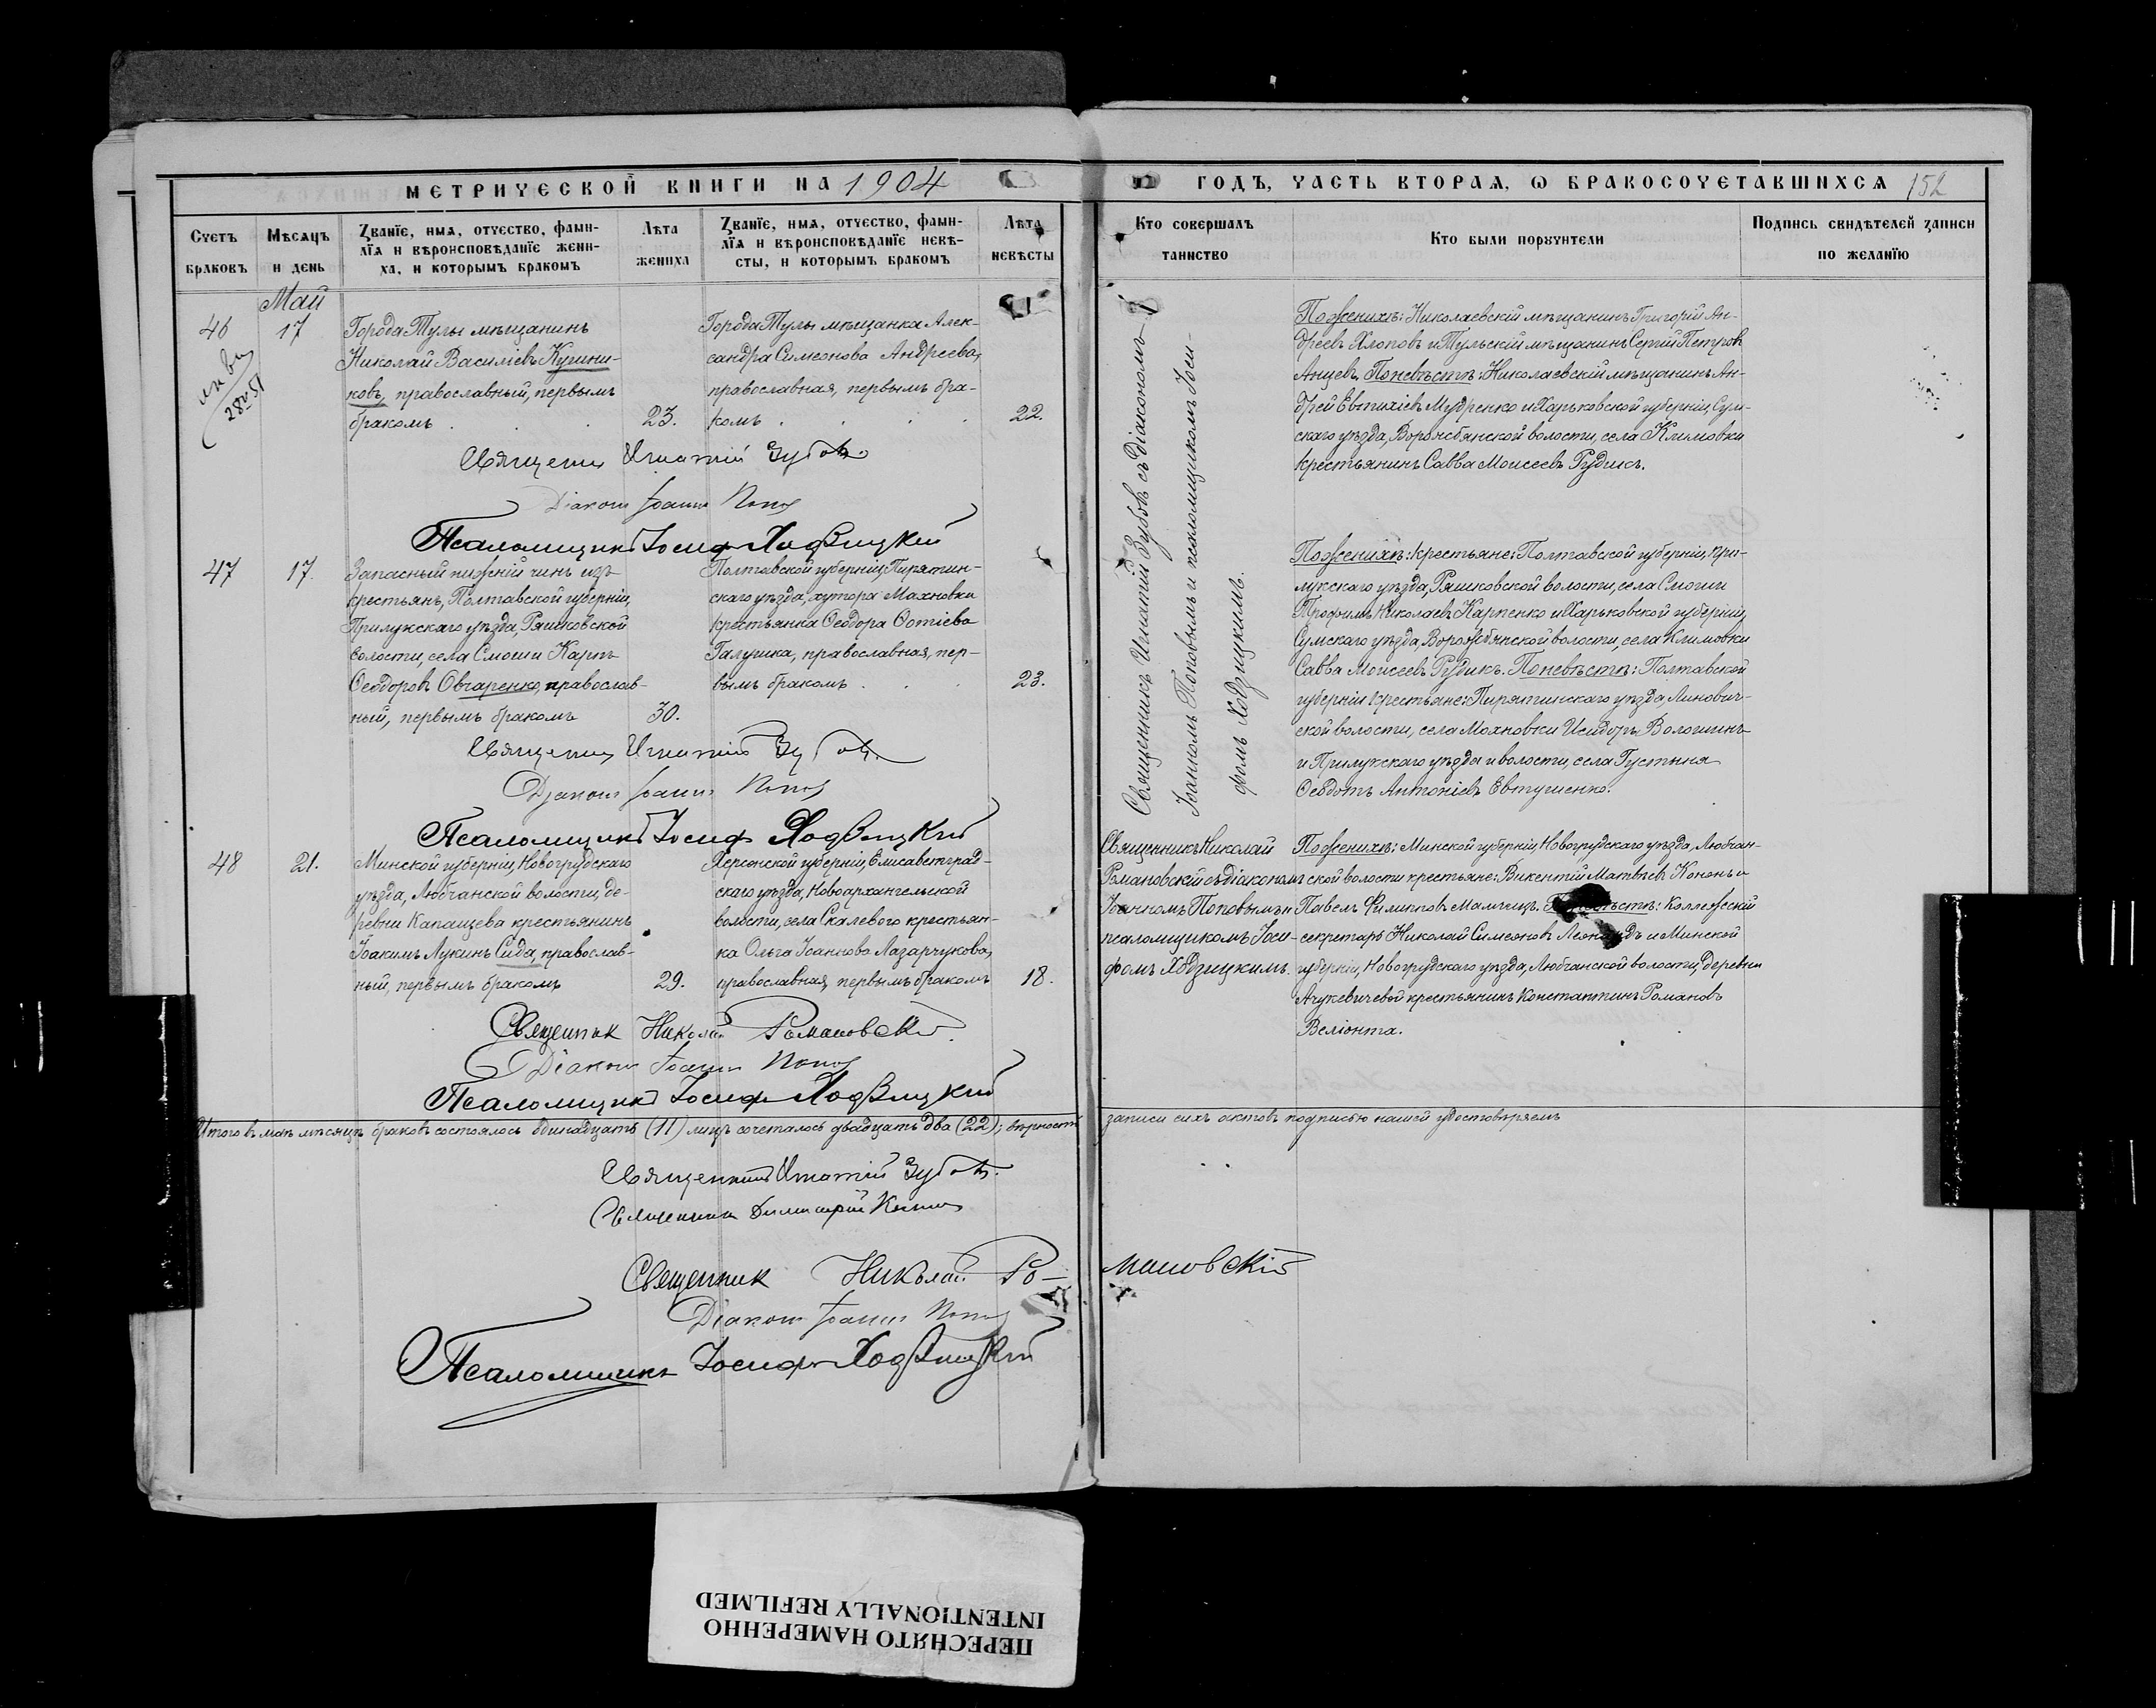 МЕТРИЧЕСКОЙ КНИГИ НА 1904
ГОДЪ, ЧАСТЬ ВТОРАЯ, Ѡ БРАКОСОЧЕТАВШИХСЯ 152
Счетъ браковъ
Мѣсяцъ и день
Званїе, имя, отчество, фами-
лїя и вѣроисповѣданїе жени-
ха, и которымъ бракомъ
Лѣта жениха
Званїе, имя, отчество, фами-
лїя и вѣроисповѣданїе невѣ-
сты, и которымъ бракомъ
Лѣта невѣсты
Кто совершалъ таинство
Кто были поручители
Подпись свидѣтелей записи по желанїю
Май
46
17
Города Тулы мѣщанинъ
Николай Василіевъ
ковъ, православный, первымъ
бракомъ
23.
Города Тулы мѣщанка Алек-
сандра Симеонова Андреева,
православная, первымъ бра-
комъ
22.
Священникъ Игнатій Зубовъ съ діакономъ
Іоанномъ Поповымъ и псаломщикомъ Іоси-
фомъ Ходзицкимъ.
По женихѣ: Николаевскій мѣщанинъ Григорій Ан-
дреевъ Хлоповъ и Тульскій мѣщанинъ Сергій Петровъ
Анцевъ. По невѣстѣ: Николаевскій мѣщанинъ Ан-
дрей Евтихіевъ Мудренко и Харьковской губерніи, Сум-
скаго уѣзда, Ворожбянской волости, села Климовки
крестьянинъ Савва Моисеевъ Рудикъ.
Священникъ Игнатій Зубовъ
Діаконъ Іоаннъ Поповъ
Псаломщикъ Іосифъ Ходзицкий
47
17.
Запасный нижній чинъ изъ
крестьянъ, Полтавской губерніи,
Прилукскаго уѣзда, Ряшковской
волости, села Смоши Карпъ
Ѳеодоровъ Овчаренко, православ-
ный, первымъ бракомъ
30.
Полтавской губерніи, Пирятин-
скаго уѣзда, хутора Махновки
крестьянка Ѳеодора Ѳотіева
Галушка, православная, пер-
вымъ бракомъ
23.
По женихѣ: крестьяне: Полтавской губерніи, При-
лукскаго уѣзда, Ряшковской волости, села Смоши
Трофимъ Николаевъ Карпенко и Харьковской губерніи,
Сумскаго уѣзда, Ворожбянской волости, села Климовки
Савва Моисеевъ Рудикъ. По невѣстѣ: Полтавской
губерніи крестьяне: Пирятинскаго уѣзда, Линович-
ской волости, села Махновки Исидоръ Волошинъ
и Прилукскаго уѣзда и волости, села Густыня
Ѳеодотъ Антоніевъ Евтушенко.
Священникъ Игнатій Зубовъ
Діаконъ Іоаннъ Поповъ
Псаломщикъ Іосифъ Ходзицкий
48
21.
Минской губерніи, Новогрудскаго
уѣзда, Любчанской волости, де-
ревни Капащева крестьянинъ
Іоакимъ Лукинъ Сида, православ-
ный, первымъ бракомъ
29.
Херсонской губерніи, Елисаветград-
скаго уѣзда, Новоархангельской
волости, села Скалеваго крестьян-
ка Ольга Іоаннова Лазарчукова,
православная, первымъ бракомъ
18.
Священникъ Николай
Романовскій съ діакономъ
Іоанномъ Поповымъ и
псаломщикомъ Іоси-
фомъ Ходзицкимъ.
По женихѣ: Минской губерніи, Новогрудскаго уѣзда, Любчан-
ской волости крестьяне: Викентій Матвѣевъ Кононъ и
Павелъ Филипповъ : Коллежскій
секретарь Николай Симеоновъ и Минской
губерніи, Новогрудскаго уѣзда, Любчанской волости, деревни
Ачукевичевой крестьянинъ Константинъ Романовъ
Веліонта.
Священникъ Николай Романовскій
Діаконъ Іоаннъ Поповъ
Псаломщикъ Іосифъ Ходзицкий
Итого въ маѣ мѣсяцѣ браковъ состоялось одинадцать (11) лицъ сочеталось двадцать два (22); вѣрность
записи сихъ актовъ подписью нашей удостовѣряемъ
Священникъ Игнатій Зубовъ.
Священникъ Димитрій
Священникъ Николай Ро-
мановскій
Діаконъ Іоаннъ Поповъ
Псаломщикъ Іосифъ Ходзицкий
ПЕРЕСНЯТО НАМЕРЕННО
INTENTIONALLY REFILMED